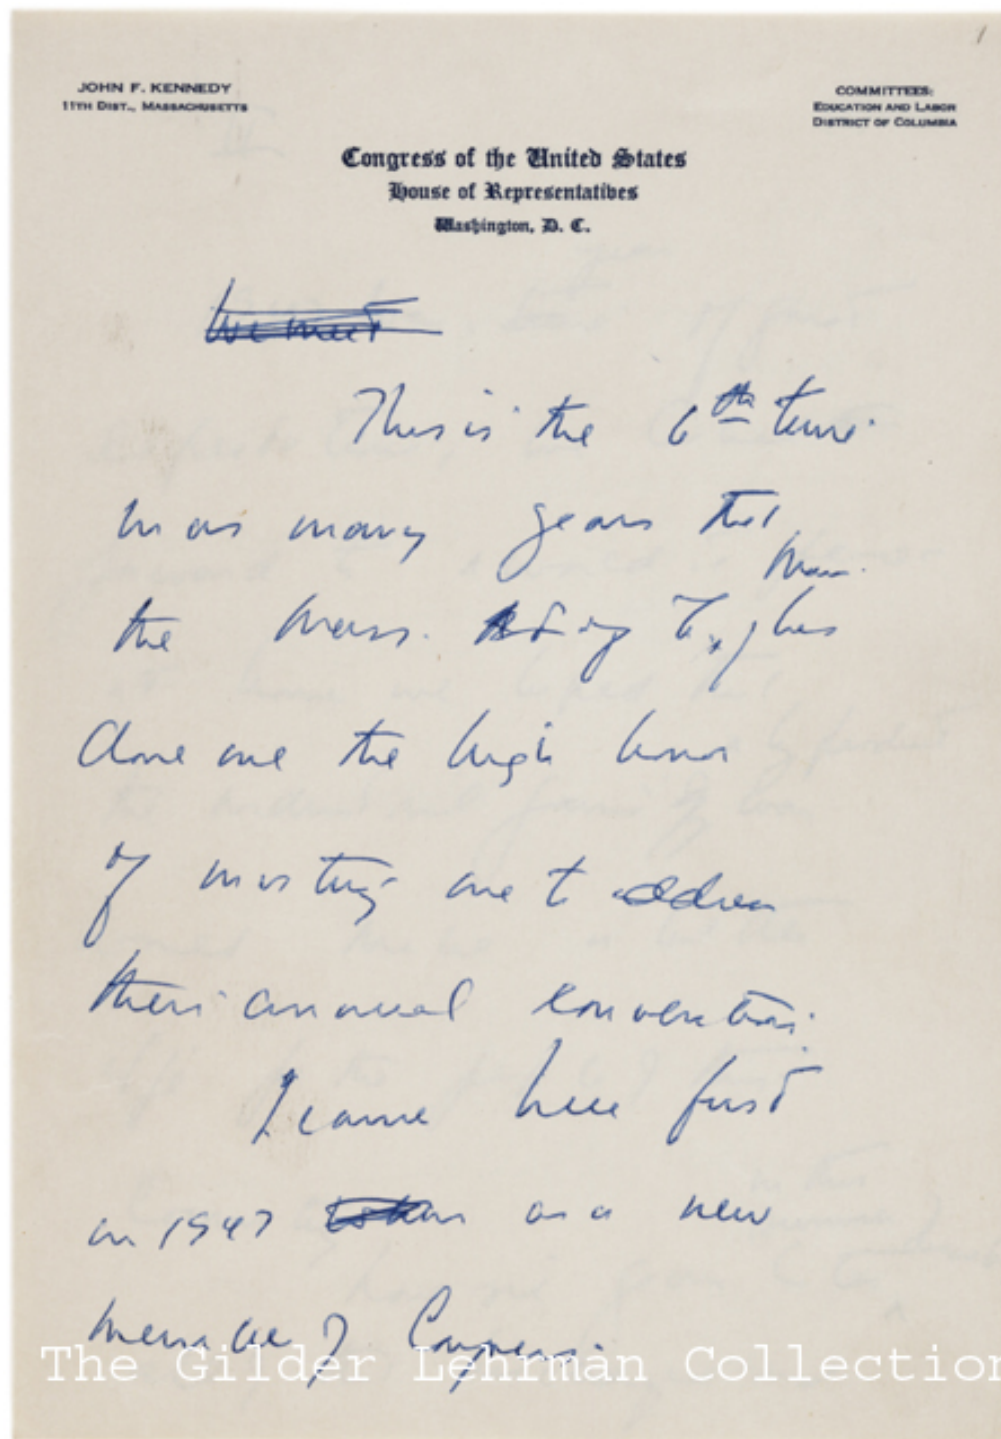 1
JOHN F. KENNEDY
11TH DIST., MASSACHUSETTS
COMMITTEES:
EDUCATION AND LABOR
DISTRICT OF COLUMBIA
Congress of the United States
House of Representatives
Washington, D. C.
We meet
This is the 6th time
in as many years that
the Mass. of has
done me the high honor
of inviting me to address
their annual convention.
I came here first
in 1947 as a new
member of Congress.
The Gilder Lehrman Collection